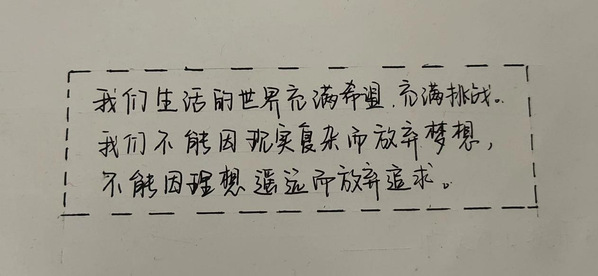 我们生活的世界充满希望,充满挑战。
我们不能因现实复杂而放弃梦想，
不能因理想遥远而放弃追求。